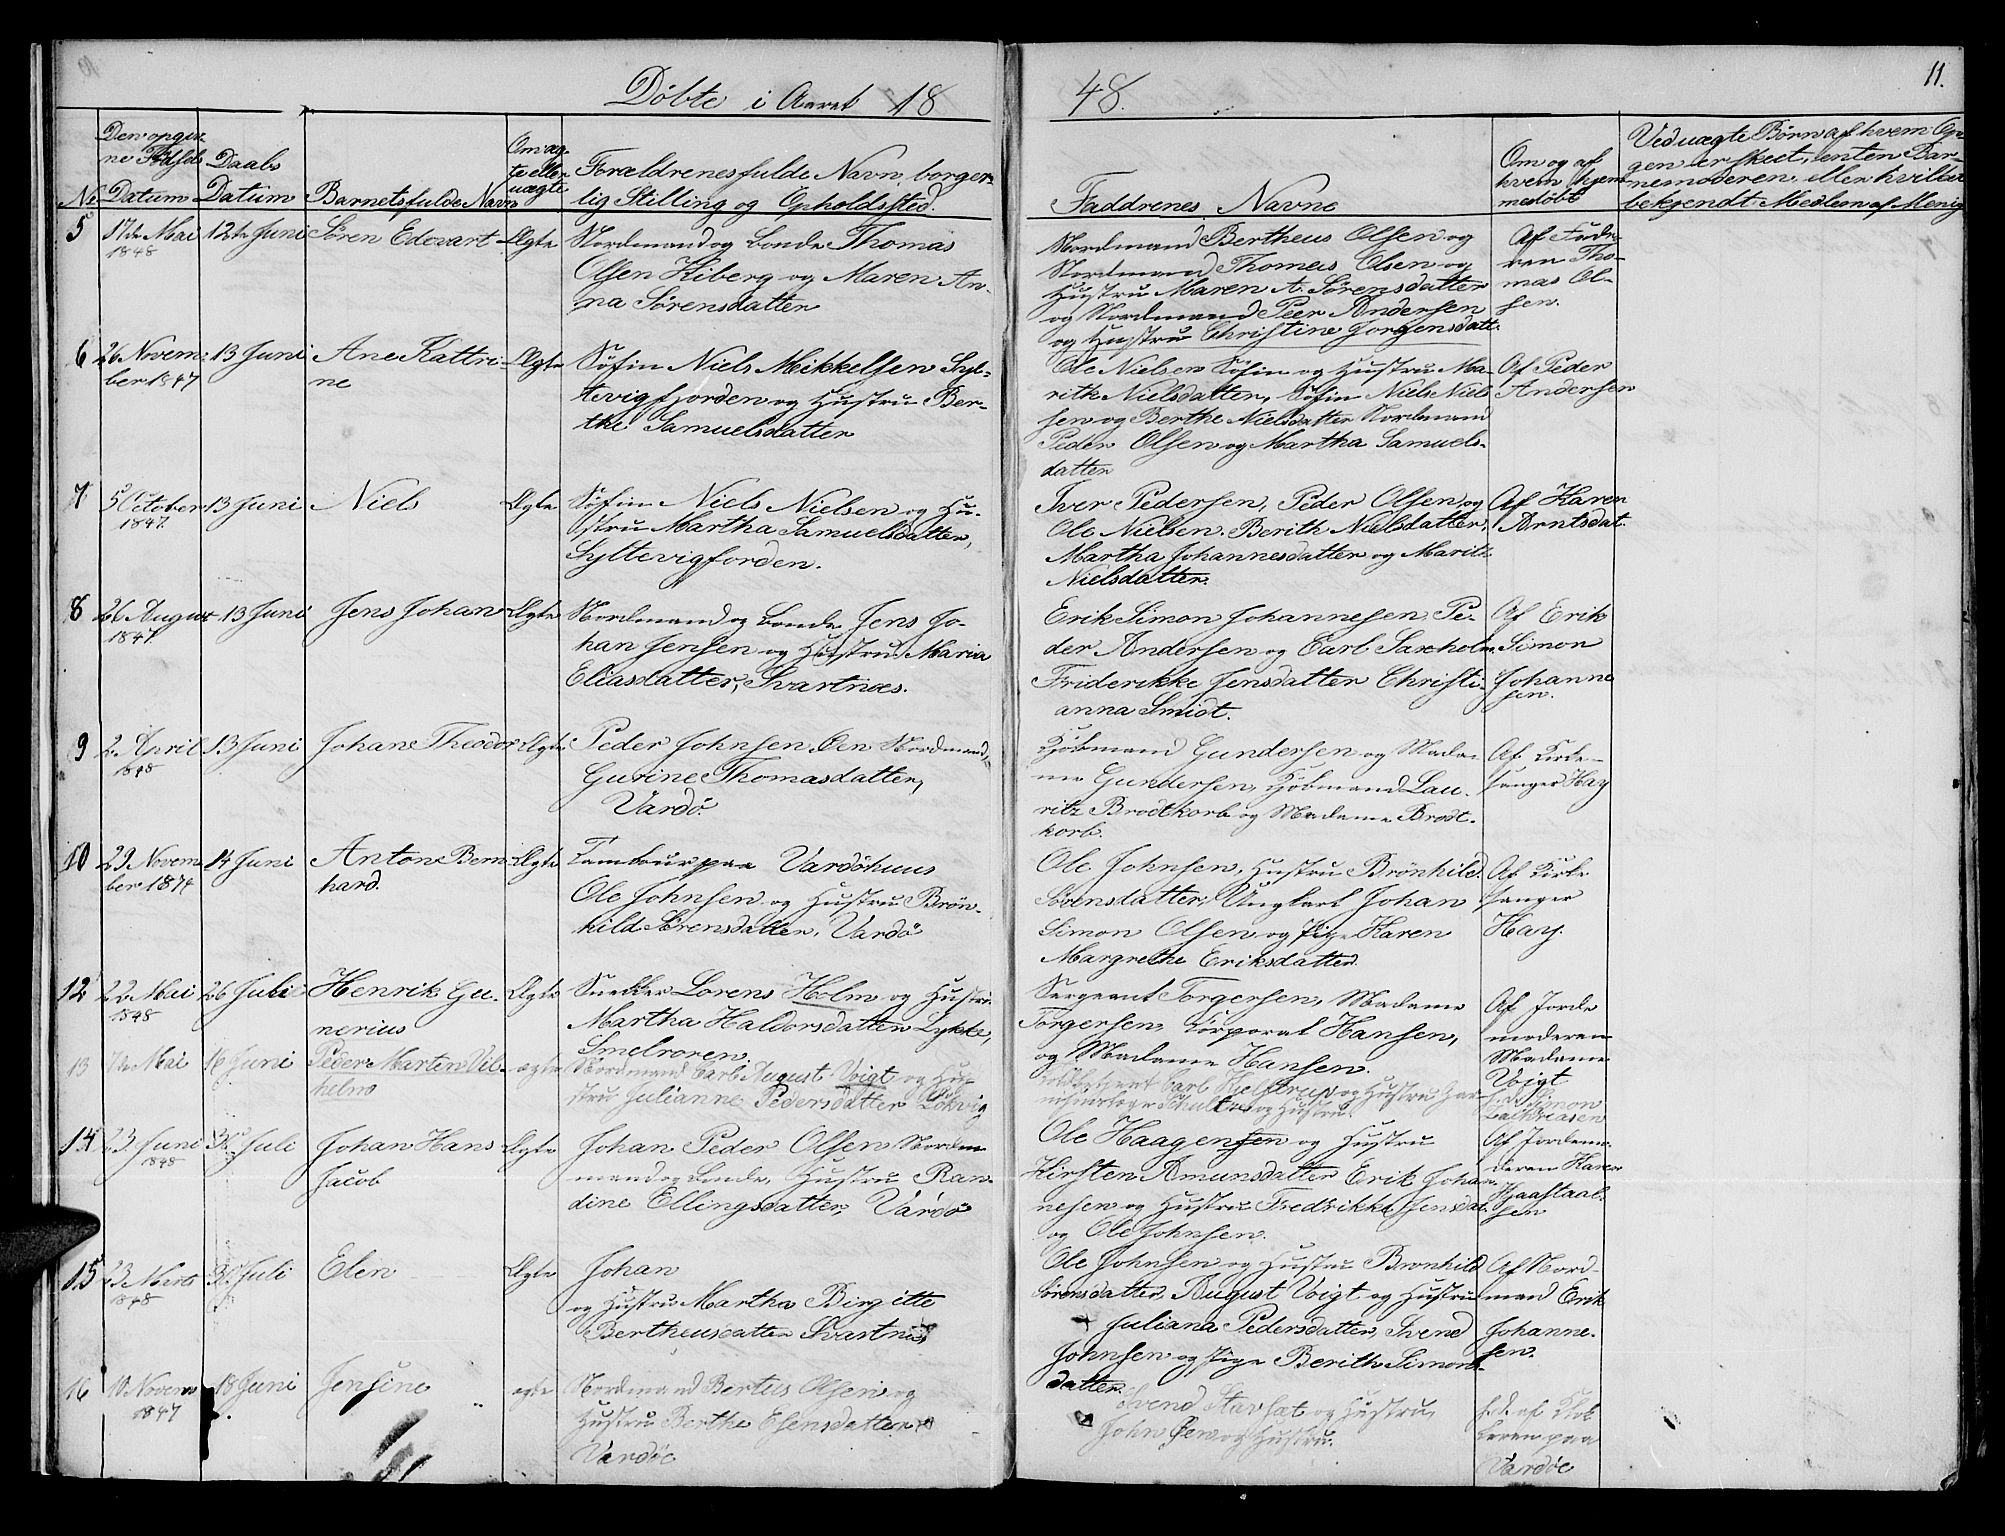 Döbte i Aaret 18 48. 11.
No
Den opgiv-
ne Fødsels
Datum
Daabs
Datum
Barnets fulde Navn
Om æg-
te eller
uægte
Forældrenes fulde Navn, borger-
lig Stilling og Opholdssted.
Faddrenes Navne
Om og af
hvem hjem-
medöbt
Ved uægte Börn af hvem Op-
gen er skeet, enten Bar-
nesmoderen eller hvilket
bekjendt Medlem af Menig
5 17de Mai 12te Juni Sören Edevart Ægte Nordmand og Bonde Thomas
1848
Olsen Kiberg og Maren An-
na Sörensdatter
Nordmand Bertheus Olsen og
Nordmand Thomas Olsen og
Hustru Maren A. Sörensdatter
og Nordmand Peer Andersen
og Hustru Christine Jorgensdatt:
Af Fade-
ren Tho-
mas Ol-
sen.
6 26 Novem- 13 Juni Ane Kattri- Ægte Söfin Niels Mikkelsen Syl-
ber 1847 ne
tevigfjorden og Hustru Ber-
the Samuelsdatter
Ole Nielsen Söfin og Hustru Ma-
rith Nielsdatter, Söfin Niels Niel-
sen og Berthe Nielsdatter Nordmand
Peder Olsen og Martha Samuels-
datter
Af Peder
Andersen
7 5 October 13 Juni Niels Ægte Söfin Niels Nielsen og Hu-
1847.
stru Martha Samuelsdatter,
Syltevigforden.
Iver Pedersen, Peder Olsen og
Ole Nielsen. Berith Nielsdatter,
Martha Johannesdatter og Marith
Nielsdatter.
Af Karen
Arntsdat.
8 26 August 13 Juni Jens Johan Ægte Nordmand og Bonde Jens Jo-
1847.
han Jensen og Hustru Maria
Eliasdatter, Svartnæs.
Erik Simon Johannesen, Pe-
der Andersen og Carl Saxholm.
Friderikke Jensdatter Christi-
anna Smidt.
Af Erik
Simon
Johanne
sen.
9 2. April 13 Juni Johan Theodor Ægte Peder Johnsen, Een Nordmand,
1848
Gurine Thomasdatter,
Vardö.
Kjöbmand Gundersen og Mada-
me Gundersen, Kjöbmand Lau-
ritz Brodtkorb og Madame Brodt-
korb.
Af Kirke-
sanger Hay
10 29 Novem 14 Juni Anton Bern Ægte Tambur paa Vardöhuus
ber 1874 hard.
Ole Johnsen og Hustru Brön-
hild Sörensdatter, Vardö
Ole Johnsen, Hustru Brönhild
Sörensdatter, Ungkarl Johan
Simon Olsen og Pige Karen
Margrethe Eriksdatter.
Af Kirke
sanger
Hay.
12 22 Mai 26 Juli Henrik Gu- Ægte Snedker Lorens Holm og Hustru
1848 nerius
Martha Haldorsdatter Lykke,
Smelroren.
Sergeant Torgersen, Madame
Torgersen, Corporal Hansen,
og Madame Hansen.
Af Jorde
moderen
Madame
Voigt
13 7de Mai 16 Juni Peder Morten Vil- ægte Nordmand Carl August Voigt og Hu-
helm
stru Julianne Pedersdatter Lökvig
Carl og Hustru
og Hustru
Simon
14 23 Juni 30 Juli Johan Hans Ægte Johan Peder Olsen Nordm-
1848 Jacob
mand og Bonde, Hustru Ran-
dine Ellingsdatter, Vardö
Ole Haagensen og Hustru
Kirsten Amunsdatter Erik Johan-
nesen og Hustru Fredrikke Jensdat
og Ole Johnsen.
Af Jordemo-
deren Karen
Haastaal-
sen
15 23 Marts 30 Juli Elen Ægte Johan
1848
og Hustru Martha Birgitte
Bertheusdatter Svartnæs
Ole Johnsen og Hustru Bronhild
Sörensdatter, August Voigt og Hustru
Juliana Pedersdatter, Svend
Johnsen og Pige Berith Simons-
datter
Af Nord-
mand Erik
Johanne-
sen.
16 10 Novem 18 Juni Jensine ægte Nordmand Bertus Olsen og
1847
Hustru Berthe Esensdatter
Vardöe
Svend Stavsat og Hustru,
John og Hustru.
h. d. af Klok
keren paa
Vardöe